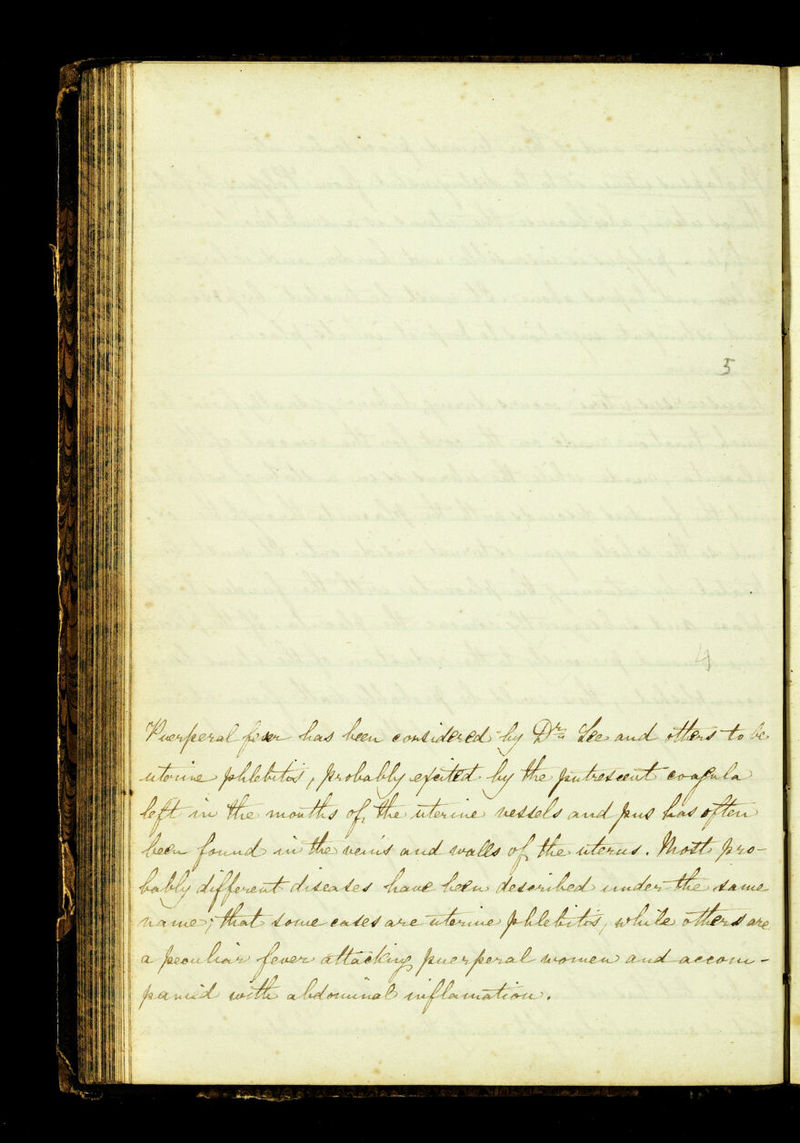 5
4
Puerperal fever has been considered by Dr. Lee and others to be
uterine phlebitis, probably excited by the putrescent coagula
left in the mouths of the uterine vessels and pus has often
been found in the veins and walls of the uterus. Most pro-
bably different diseases have been described under the same
name; that some cases are uterine phlebitis, while others are
a peculiar fever attacking puerperal women and accom-
panied with abdominal inflamation.